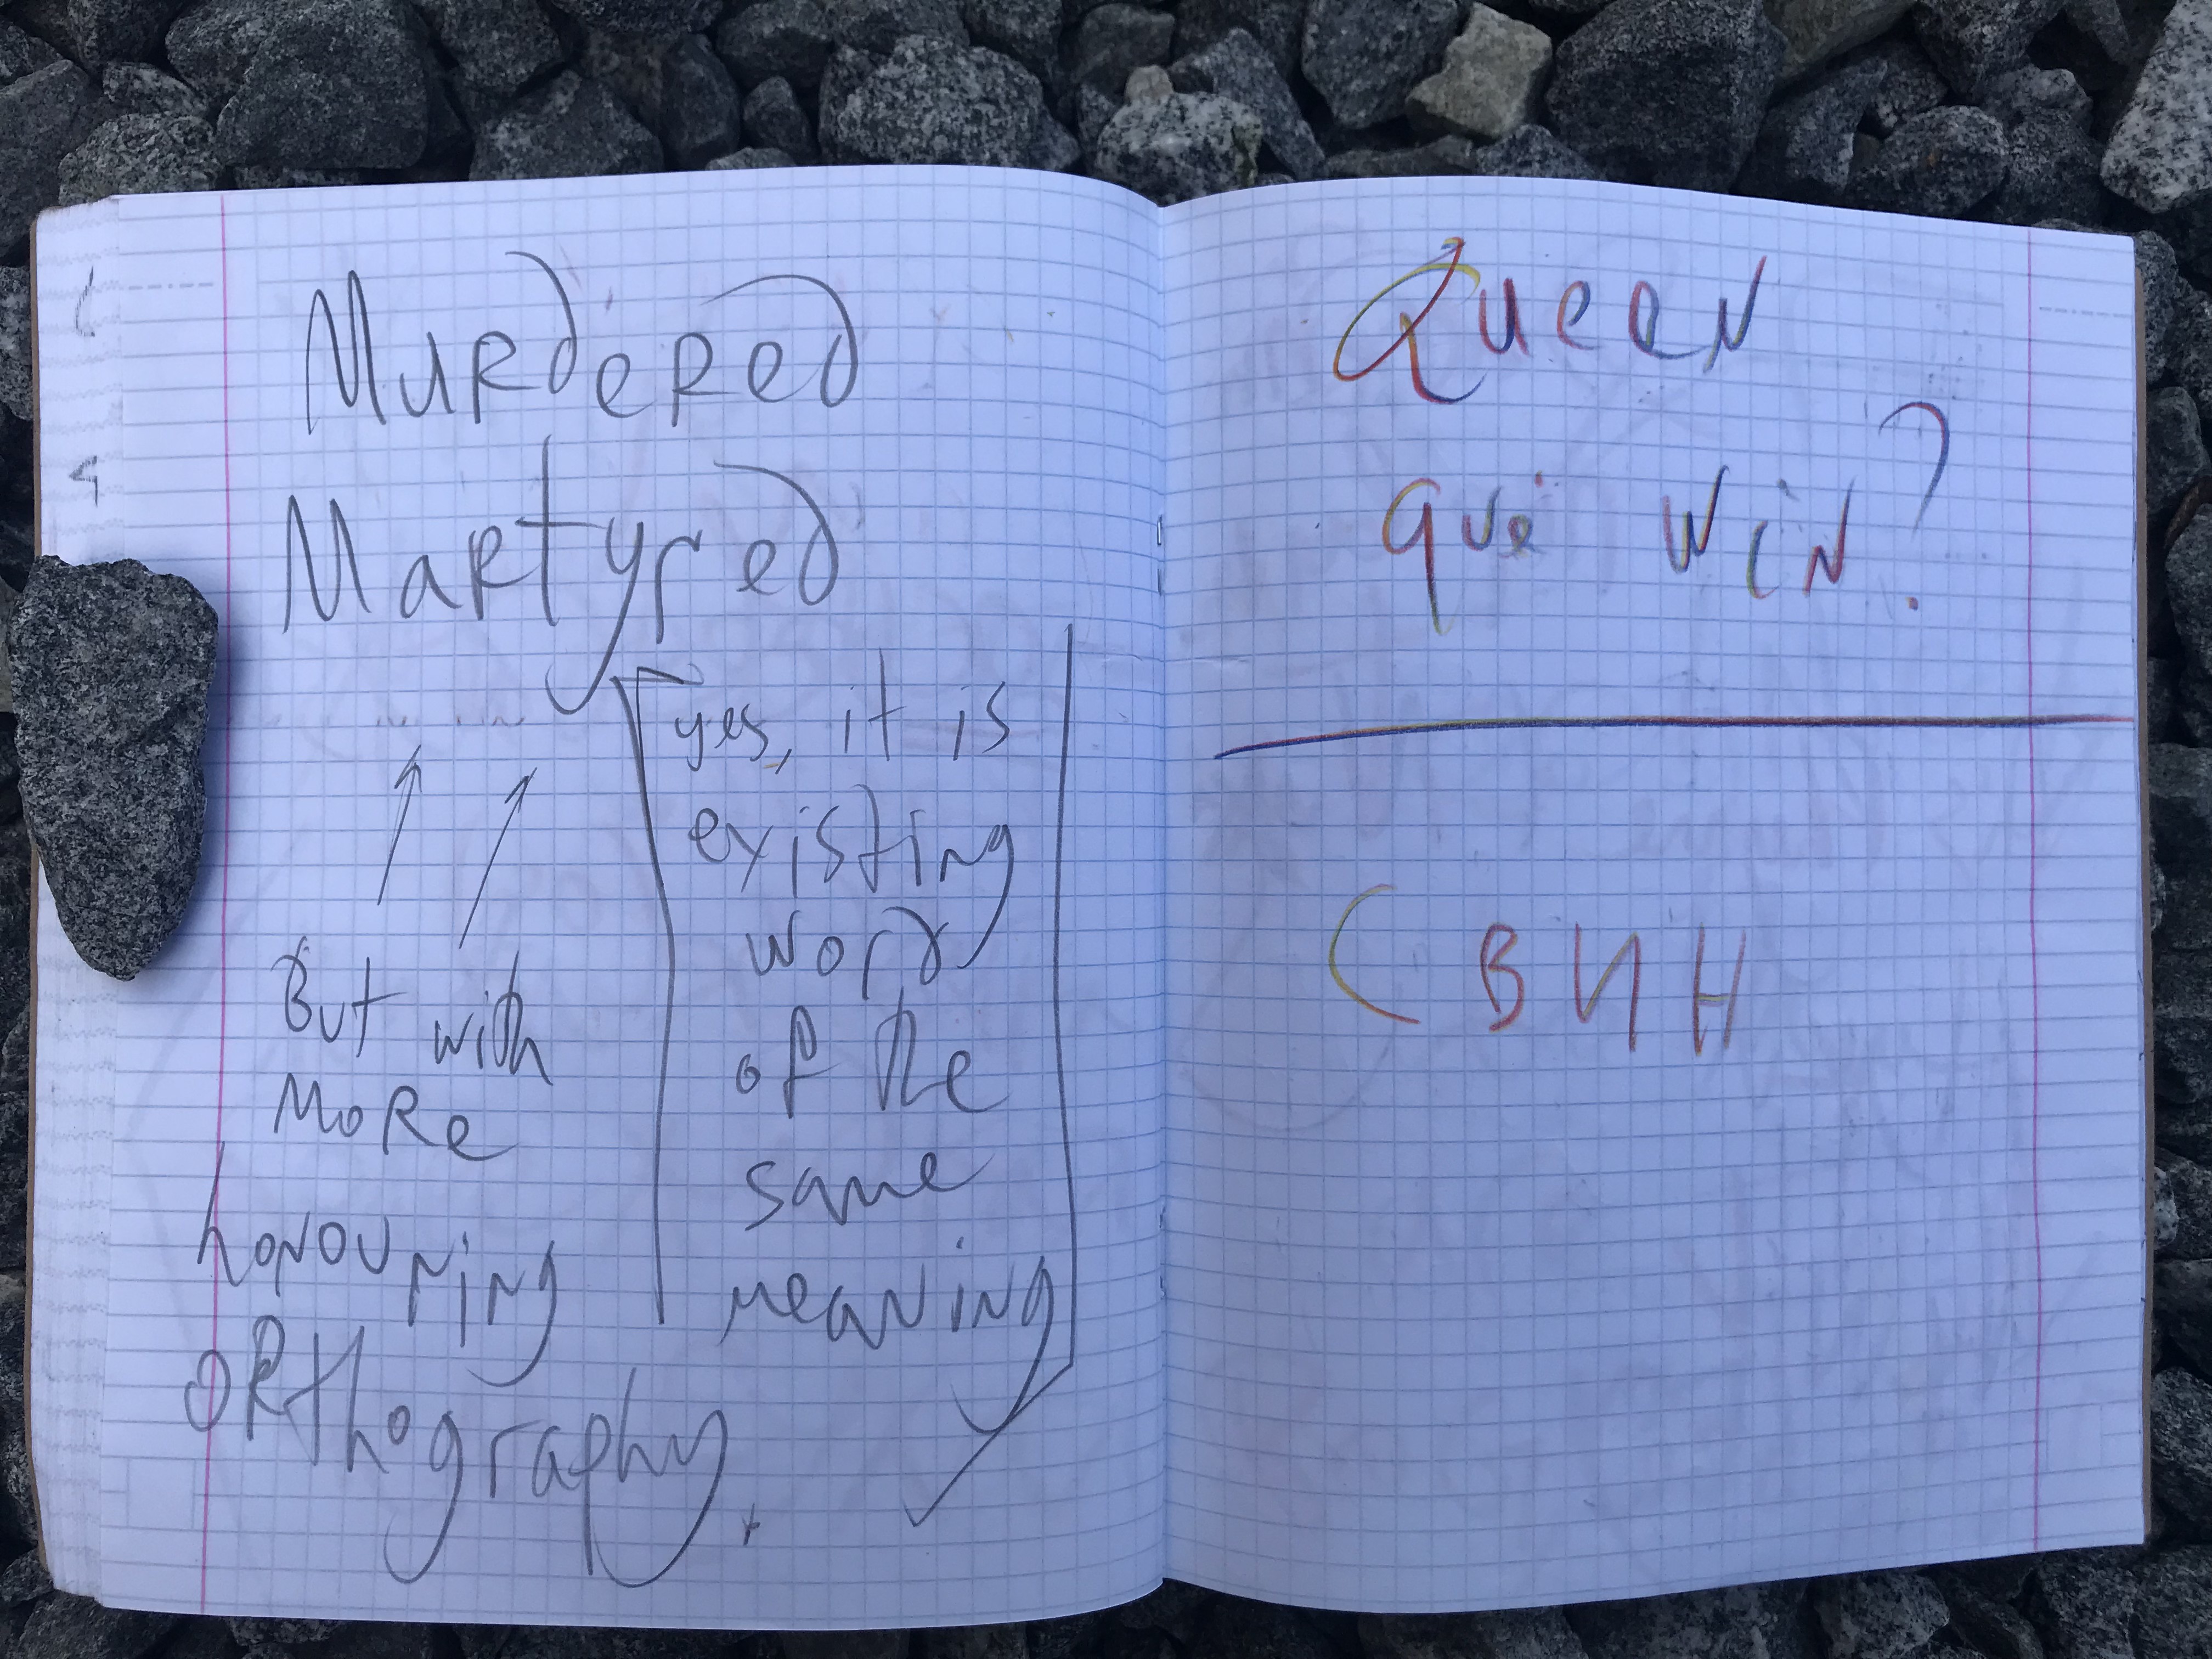 Murdered
Martyred
yes, it is
existing
word
of the
same
meaning
But with
more
honouring
orthography.
Queen
win?
СВИН